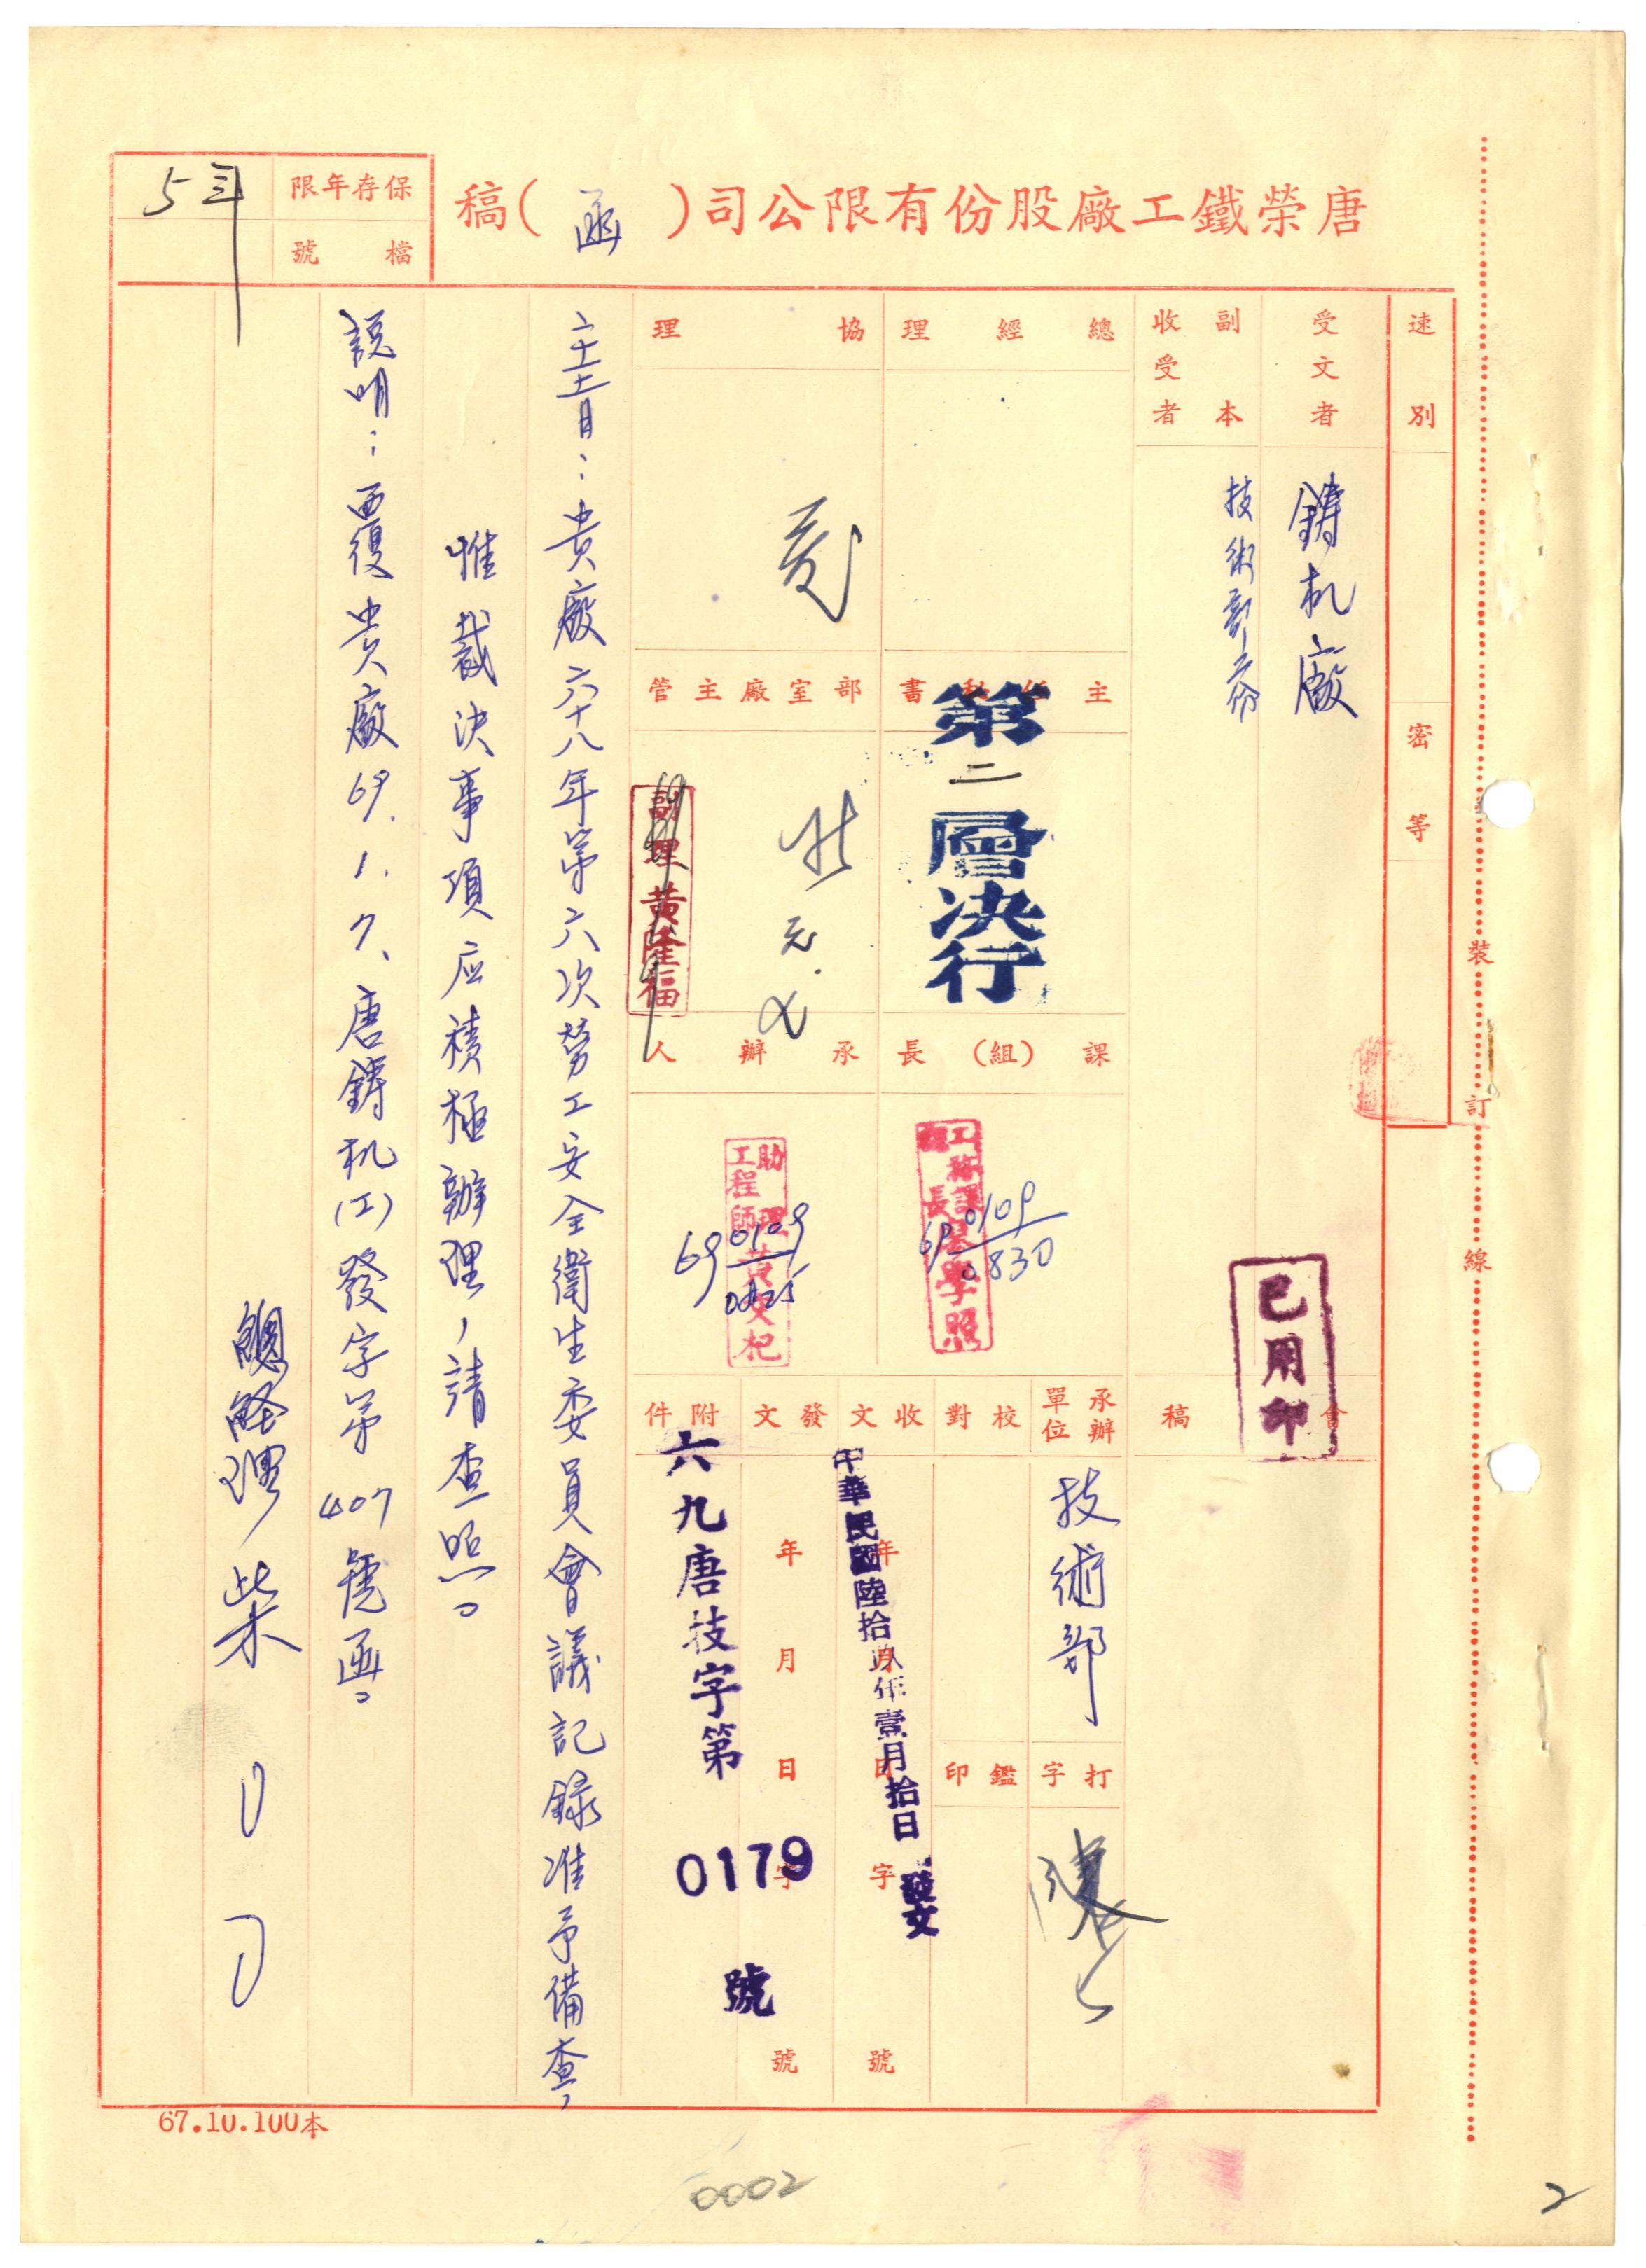 唐榮鐵工廠股份有限公司（函）稿
保存年限
5年
檔號
速別
密等
受文者
鑄机廠
副本收受者
技術部二份
會稿
已用印
總經理
協理
主任秘書
部室廠主管
第二層決行
副理 黃隆福
元.
課(組)長
承辦人
工務課課長
學照
69 0109
0830
助理工程師 黃文杞
69 0109
0825
承辦單位
技術部
打字
陳
校對
鑑印
收文
年月日字號
中華民國陸拾玖年壹月拾日
發文
發文
年月日字號
附件
六九唐技字第0179號
主旨：貴廠六十八年第六次勞工安全衛生委員會議記録准予備查，
惟裁決事項应積極辦理，請查照。
說明：覆貴廠69.1.7.唐鑄机(工)發字第407號函。
總經理 柴〇〇
裝訂線
67.10.100本
0002
2